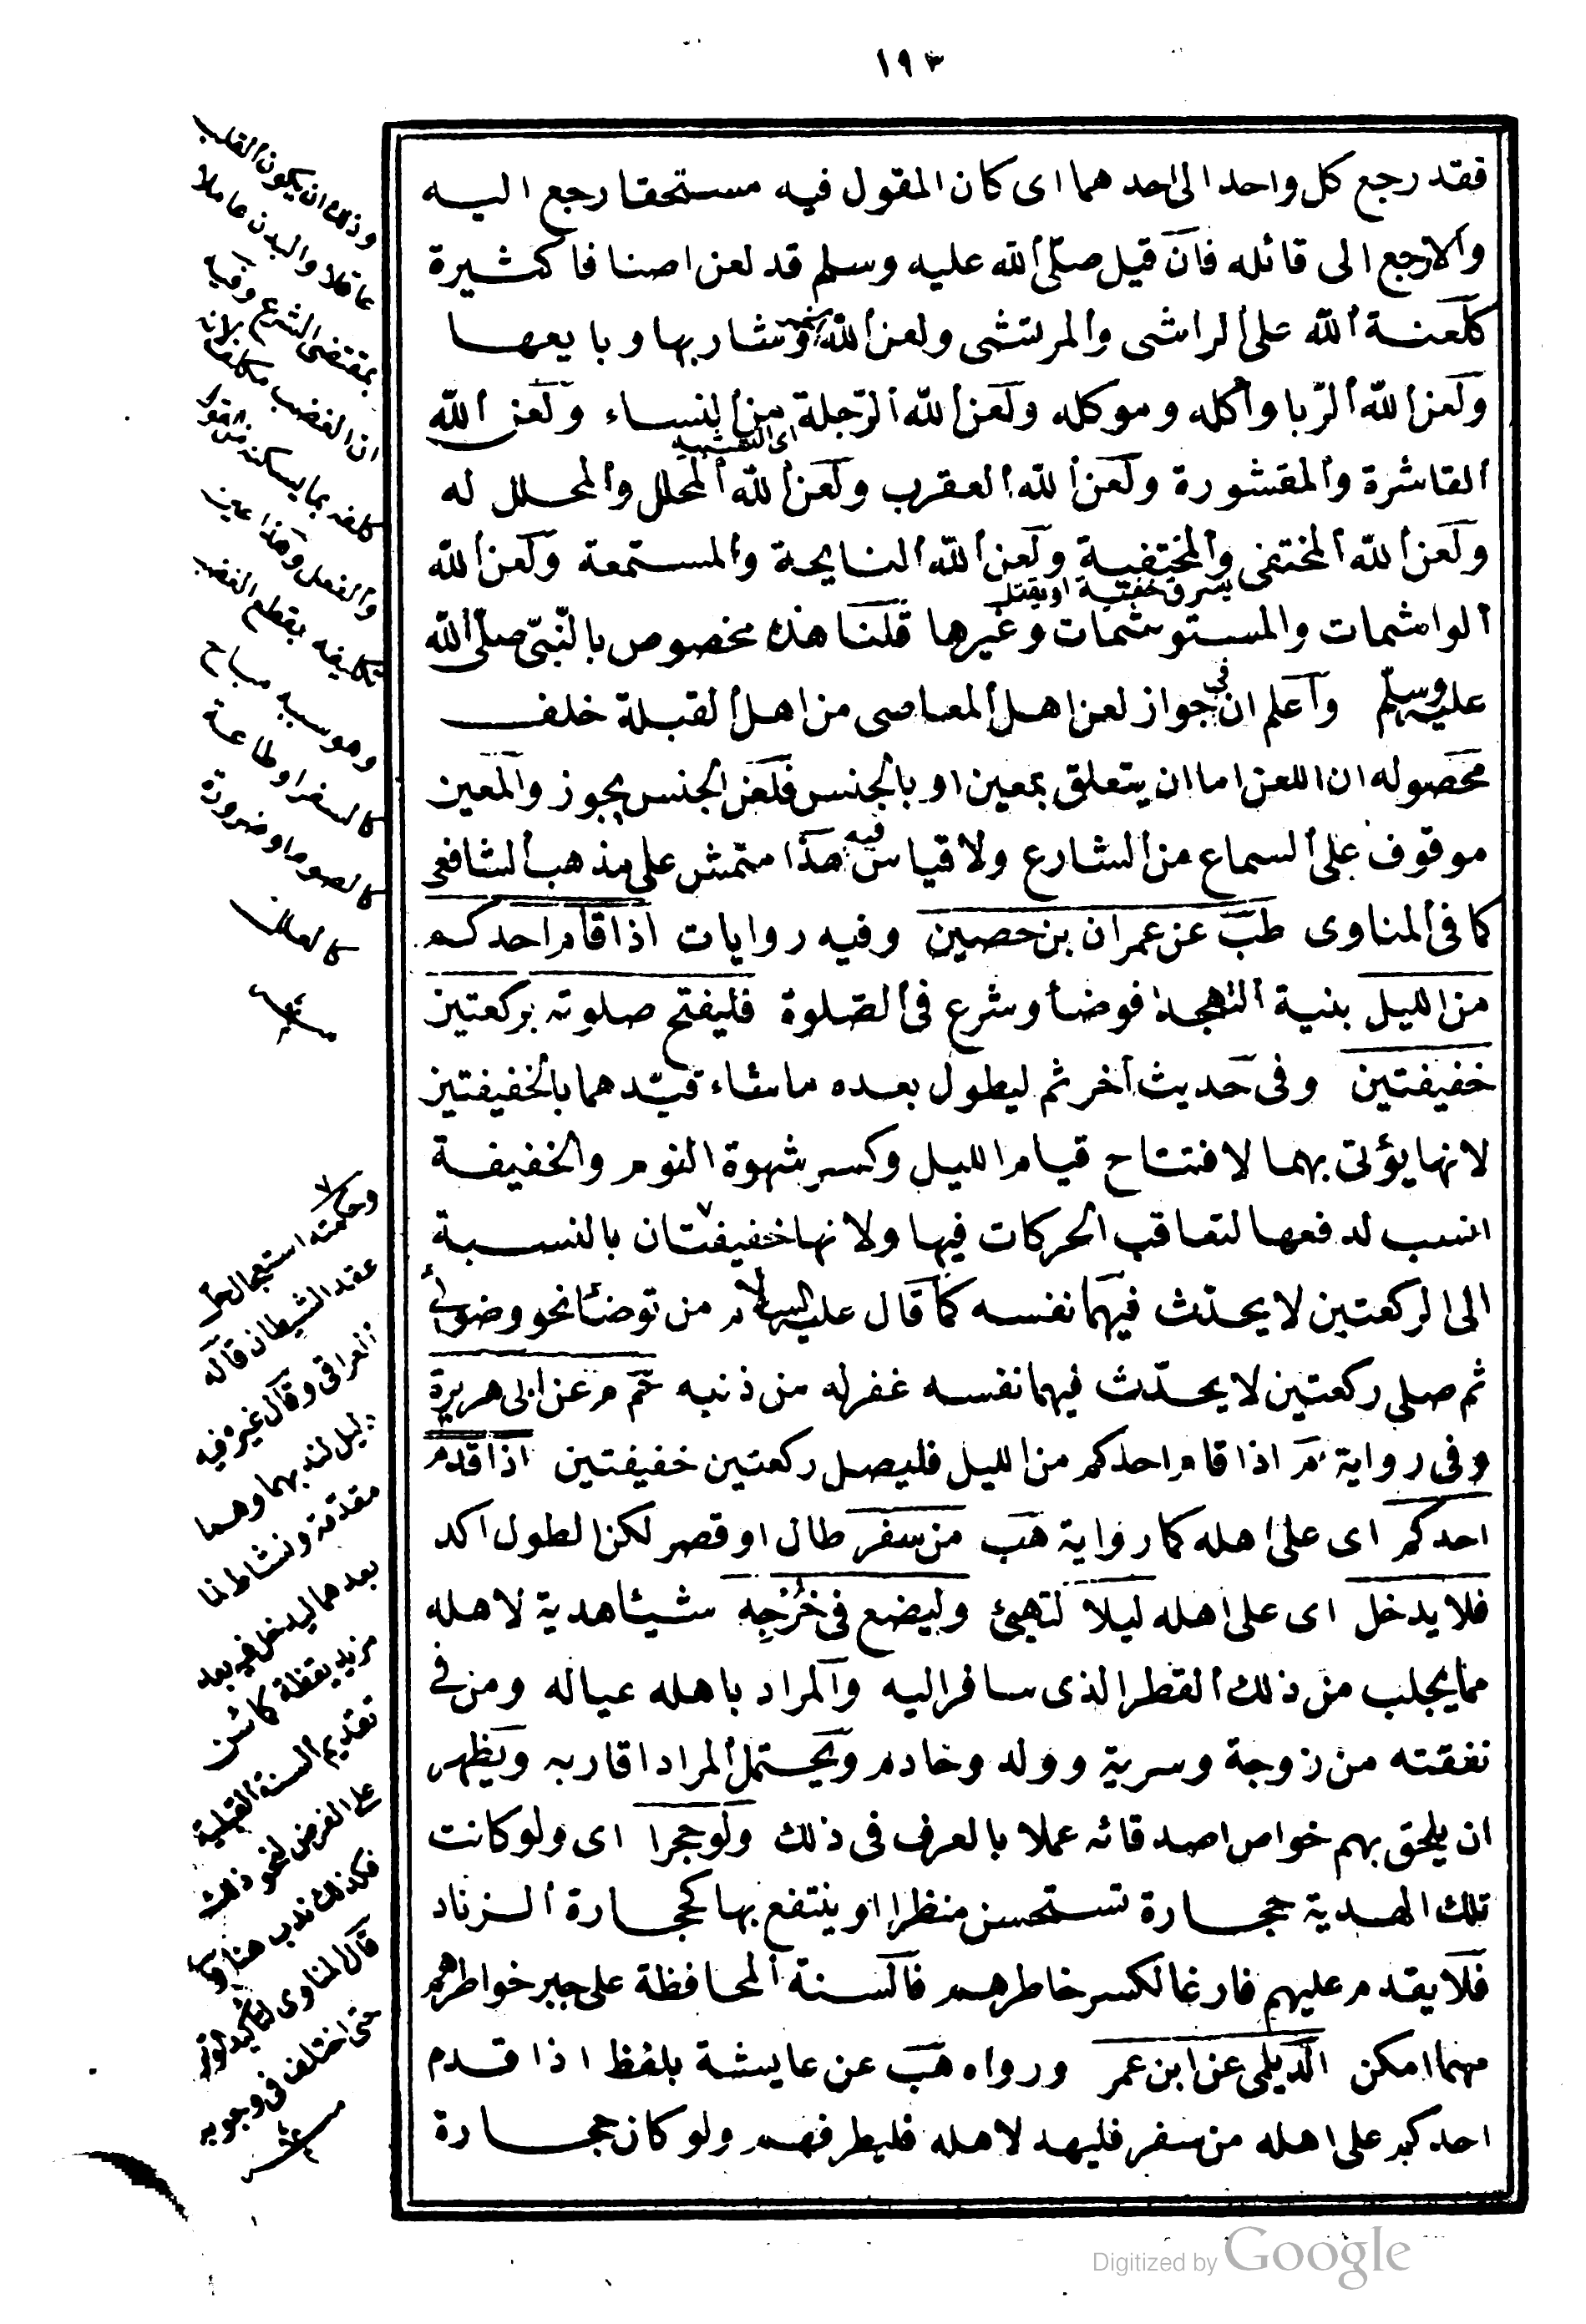 ١٩٣
فقد رجع كل واحد الى احدهما اى كان المقول فيه مستحقا رجع اليه
والا رجع الى قائله فان قيل صلى الله عليه وسلم قد لعن اصنافا كثيرة
كلعنة الله على الراشى والمرتشى ولعن الله الخمر وشاربها وبايعها
ولعن الله الربا وآكله وموكله ولعن الله الرجلة من النساء ولعن الله
اى التشبيه
القاشرة والمقشورة ولعن الله العقرب ولعن الله المحلل والمحلل له
ولعن الله المختفى والمختفية ولعن الله النايحة والمستمعة ولعن الله
يسرق خفية او يقتل
الواشمات والمستوشمات وغيرها قلنا هذا مخصوص بالنبى صلى الله
عليه وسلم واعلم ان فى جواز لعن اهل المعاصى من اهل القبلة خلف
محصوله ان اللعن اما ان يتعلق بمعين او بالجنس فلعن الجنس يجوز والمعين
موقوف على السماع من الشارع ولا قياس فيه هذا متمش على مذهب الشافعى
كما فى المناوى طب عن عمران بن حصين وفيه روايات اذا قام احدكم
من الليل بنية التهجد فوضأ وشرع فى الصلوة فليفتح صلوته بركعتين
خفيفتين وفى حديث آخر ثم ليطول بعده ما شاء قيدهما بالخفيفتين
لانها يؤتى بهما لافتتاح قيام الليل وكسر شهوة النوم والخفيفة
انسب لدفعها لتعاقب الحركات فيها ولانها خفيفتان بالنسبة
الى الركعتين لا يحدث فيهما نفسه كما قال عليه السلام من توضئا نحو وضوئى
ثم صلى ركعتين لا يحدث فيهما نفسه غفر له من ذنبه حم م عن ابى هريرة
وفى رواية م اذا قام احدكم من الليل فليصل ركعتين خفيفتين اذا قدم
احدكم اى على اهله كما رواية هب من سفر طال او قصر لكن الطول اكد
فلا يدخل اى على اهله ليلا لتهيئ وليضع فى خرجه شيئا هدية لاهله
مما يجلب من ذلك القطر الذى سافر اليه والمراد باهله عياله ومن فى
نفقته من زوجة وسرية وولد وخادم ويحتمل المراد اقاربه ويظهر
ان يلحق بهم خواص اصدقائه عملا بالعرف فى ذلك ولو حجرا اى ولو كانت
تلك الهدية حجارة تستحسن منظرا او ينتفع بها كحجارة الزناد
فلا يقدم عليهم فارغا لكسر خاطرهم فالسنة المحافظة على جبر خواطرهم
مهما امكن الديلمى عن ابن عمر ورواه هب عن عايشة بلفظ اذا قدم
احدكم على اهله من سفر فليهد لاهله فليطرفهم ولو كان حجارة
وذلك ان يكون القلب
عاقلا والبدن عاملا
بمقتضى الشرع وقيل
ان الغضب مكلفا لانه
كلفه بما يسكنه من القول
والفعل وهذا عين
تكليفه بقطع الغضب
وهو سببه مباح
كالسفر او طاعة
كالصوم او ضرورة
وحكمته استعجال حل
عقد الشيطان قاله
العراقى وقال غيره فيه
دليل لندبهما وهما
مقدمة ونشاط لما
بعدهما ليدخل فيه بعد
مزيد يقظة كما سن
تقديم السنة القبلية
على الفرض لنحو ذلك
فكذلك ندب هنا
قال المناوى لتأكيد الوتر
حتى اختلف فى وجوبه
Digitized by Google